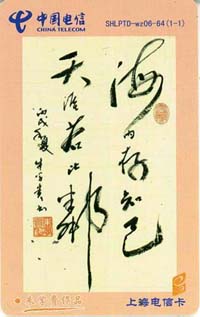 中国电信
CHINA TELECOM
SHLPTD-wz06-64(1-1)
海内存知己
天涯若比邻
丙戌
上海电信卡
作品